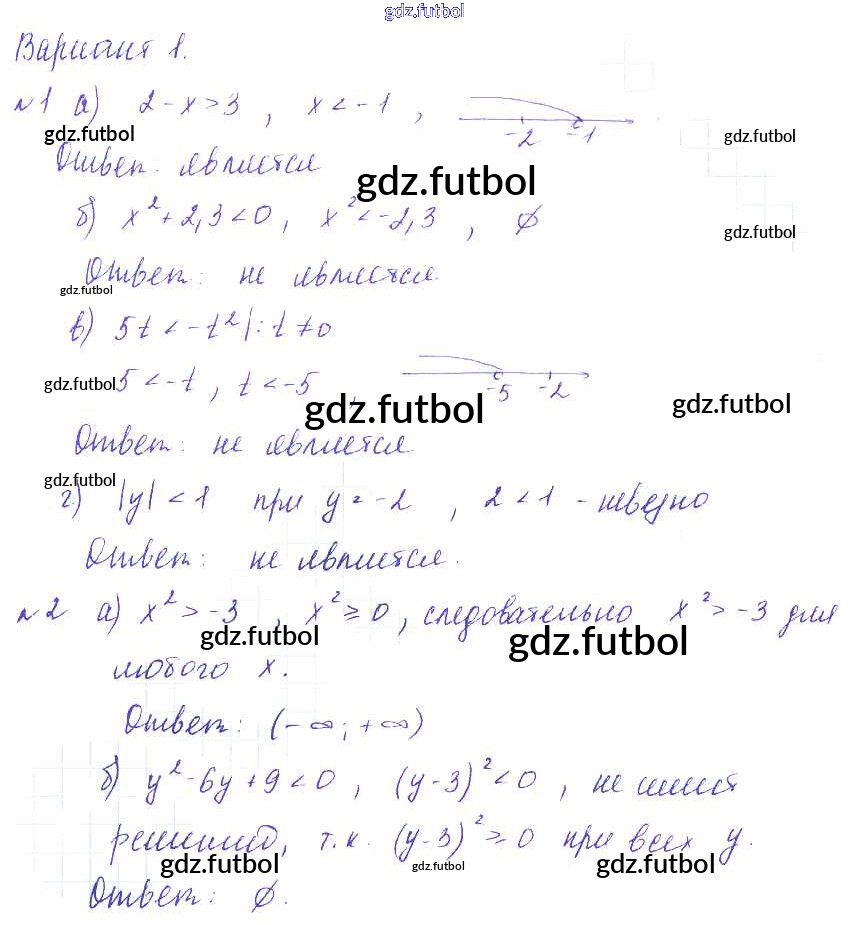 gdz.futbol
Вариант 1.
№1 а) 2-x>3, x<-1, -2 -1
gdz.futbol gdz.futbol
Ответ: является
gdz.futbol
б) x²+2,3<0, x²<-2,3, ∅
gdz.futbol
Ответ: не является.
gdz.futbol
в) 5t<-t² |:t≠0
gdz.futbol 5<-t, t<-5, -5 -2
gdz.futbol gdz.futbol
Ответ: не является
gdz.futbol
г) |y|<1 при y=-2, 2<1 - неверно
Ответ: не является.
№2 а) x²>-3, x²≥0, следовательно x²>-3 для
gdz.futbol gdz.futbol
любого x.
Ответ: (-∞;+∞)
б) y²-6y+9<0, (y-3)²<0, не имеет
решений, т.к. (y-3)²≥0 при всех y.
gdz.futbol gdz.futbol gdz.futbol
Ответ: ∅.